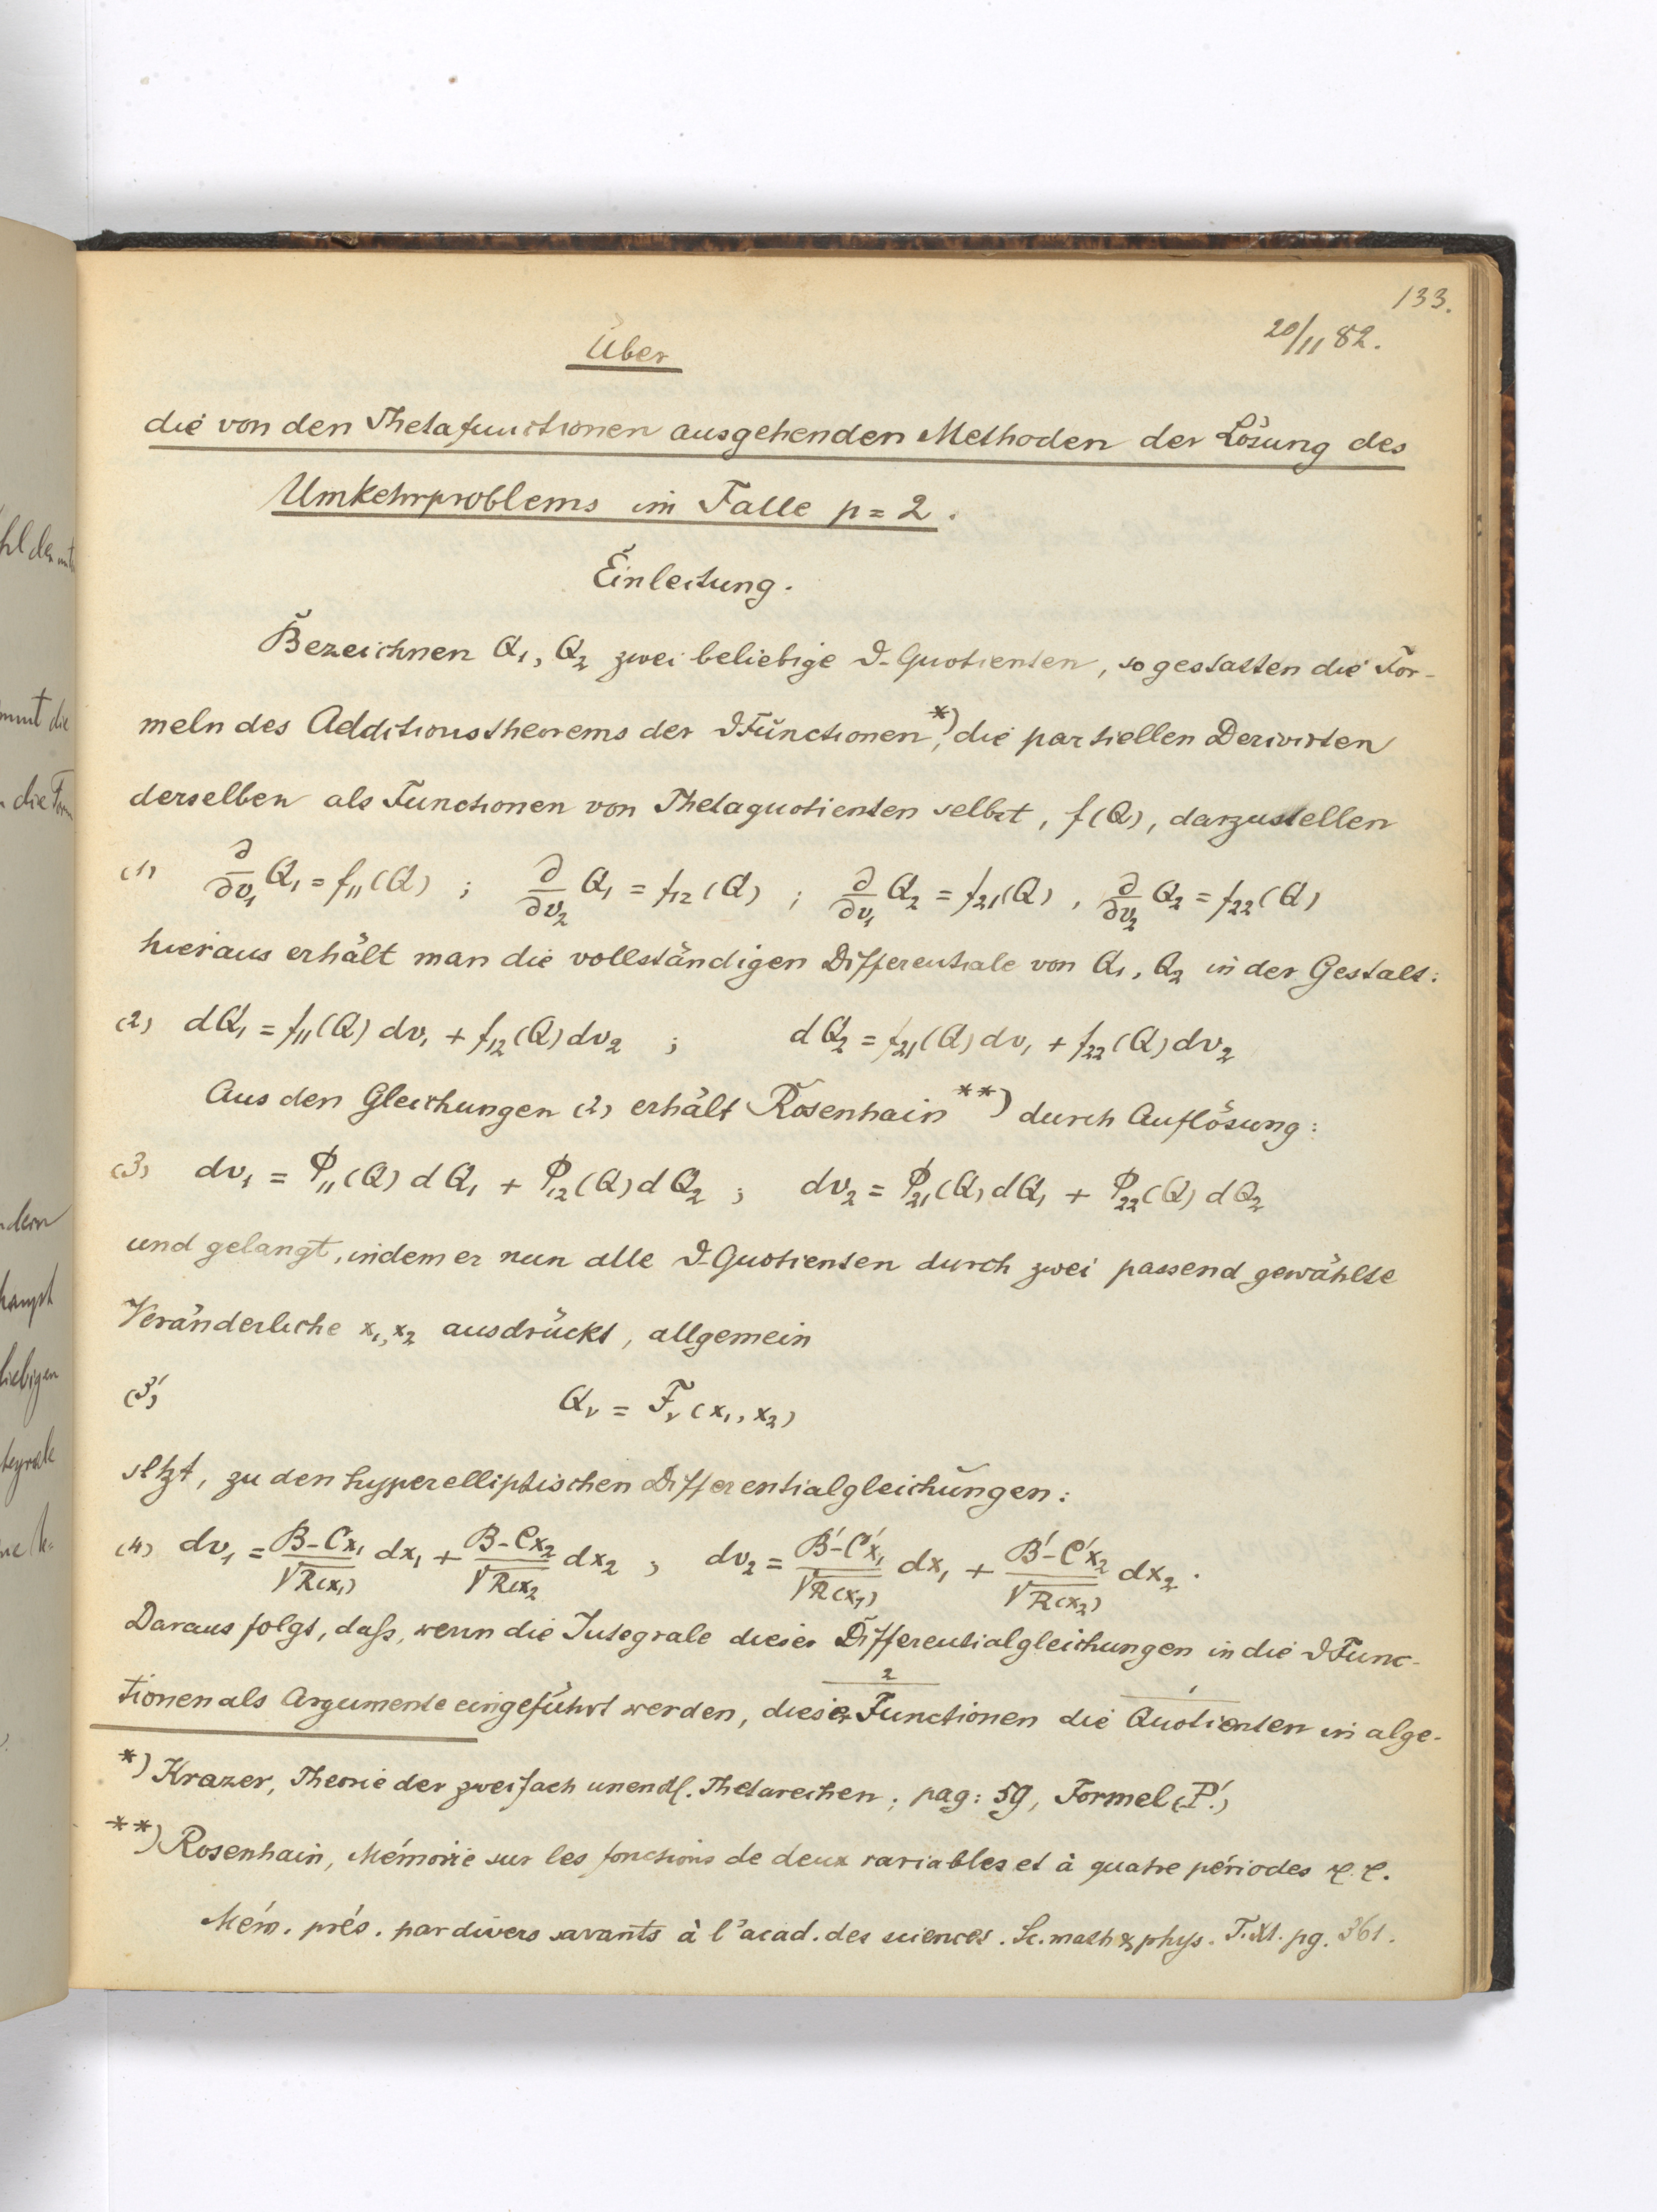 133.
20/11 82.
Über
die von den Thetafunctionen ausgehenden Methoden der Lösung des
Umkehrproblems im Falle p = 2.
Einleitung.
Bezeichnen Q₁, Q₂ zwei beliebige ϑ-Quotienten, so gestatten die For-
meln des Additionstheorems der ϑFunctionen*), die partiellen Derivirten
derselben als Functionen von Thetaquotienten selbst, f(Q), darzustellen
(1) ∂/∂v₁ Q₁ = f₁₁(Q) ; ∂/∂v₂ Q₁ = f₁₂(Q) ; ∂/∂v₁ Q₂ = f₂₁(Q), ∂/∂v₂ Q₂ = f₂₂(Q)
hieraus erhält man die vollständigen Differentiale von Q₁, Q₂ in der Gestalt:
(2) dQ₁ = f₁₁(Q) dv₁ + f₁₂(Q) dv₂ ; dQ₂ = f₂₁(Q) dv₁ + f₂₂(Q) dv₂
Aus den Gleichungen (2) erhält Rosenhain**) durch Auflösung:
(3) dv₁ = φ₁₁(Q) dQ₁ + φ₁₂(Q) dQ₂ ; dv₂ = φ₂₁(Q) dQ₁ + φ₂₂(Q) dQ₂
und gelangt, indem er nun alle ϑ-Quotienten durch zwei passend gewählte
Veränderliche x₁, x₂ ausdrückt, allgemein
(3') Qᵥ = Fᵥ(x₁, x₂)
setzt, zu den hyperelliptischen Differentialgleichungen:
(4) dv₁ = B-Cx₁/√R(x₁) dx₁ + B-Cx₂/√R(x₂ dx₂ ; dv₂ = B'-C'x₁/√R(x₁) dx₁ + B'-C'x₂/√R(x₂) dx₂.
Daraus folgt, daſs, wenn die Integrale dieser Differentialgleichungen in die ϑFunc-
tionen als Argumente eingeführt werden, dieser Functionen die Quotienten in alge-
2 1
*) Krazer, Theorie der zweifach unendl. Thetareihen; pag: 59, Formel (P'.)
**) Rosenhain, Mémoire sur les fonctions de deux variables et à quatre périodes etc.
Mém. prés. par divers savants à l'acad. des sciences. Sc. math & phys. T. XI. pg. 361.